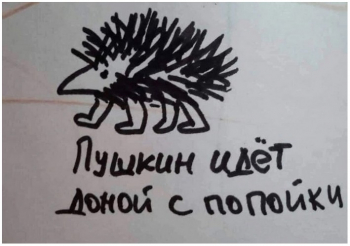 Пушкин идёт
домой с попойки